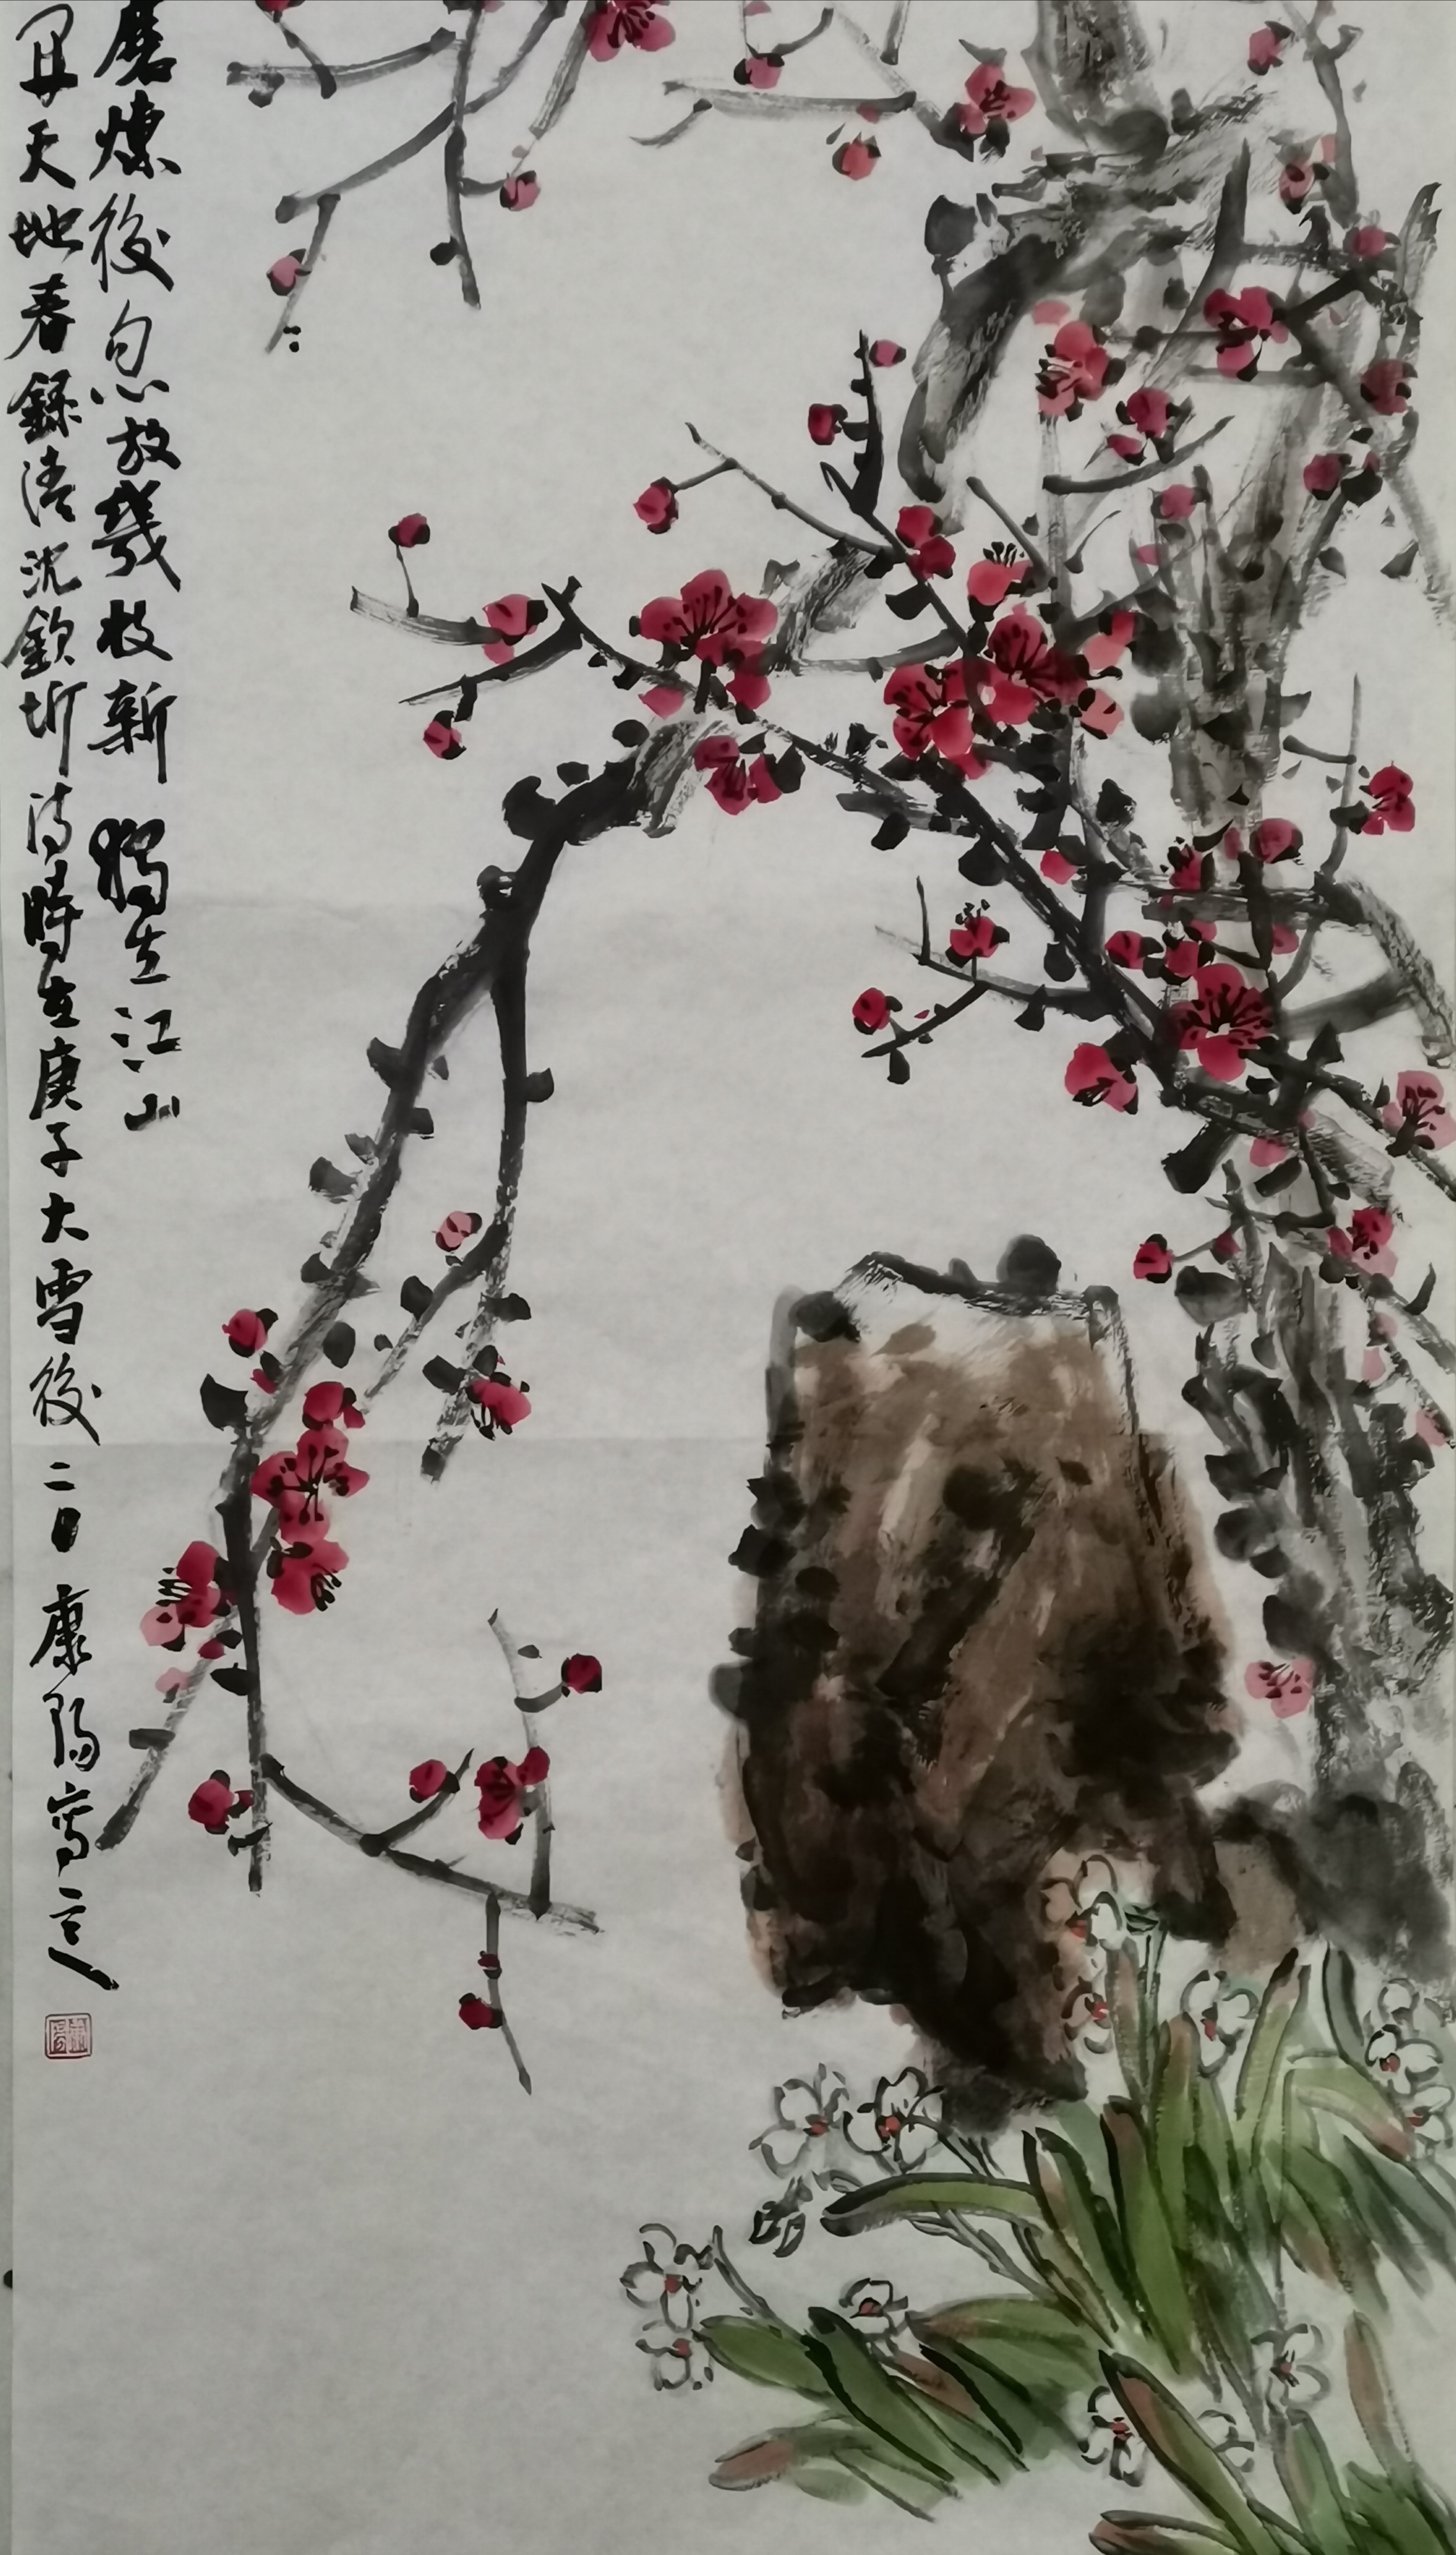 磨煉後忽放幾枝新 獨立江山
開天地春錄清沈欽圻詩時在庚子大雪後二日康陽寫之
康陽